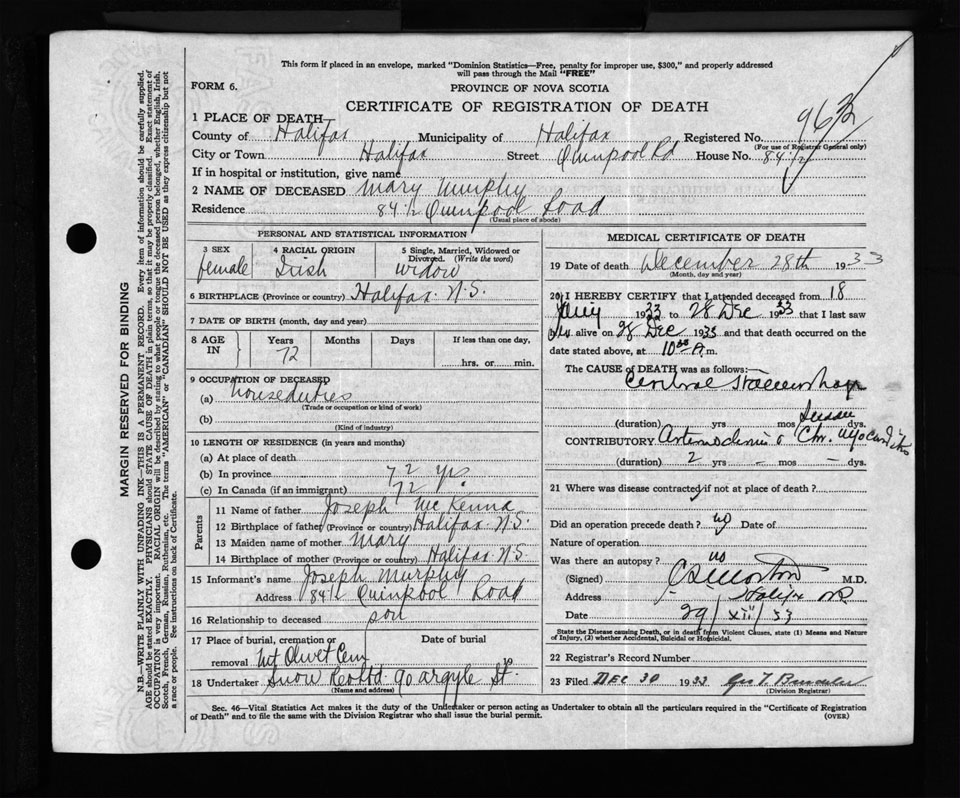 This form if placed in an envelope, marked "Dominion Statistics—Free, penalty for improper use, $300," and properly addressed
will pass through the Mail "FREE"
FORM 6.
PROVINCE OF NOVA SCOTIA
CERTIFICATE OF REGISTRATION OF DEATH
1 PLACE OF DEATH
County of Halifax Municipality of Halifax Registered No. 963
(For use of Registrar General only)
City or Town Halifax Street Quinpool Rd House No. 84 1/2
If in hospital or institution, give name
2 NAME OF DECEASED Mary Murphy
Residence 84 1/2 Quinpool Road
(Usual place of abode)
PERSONAL AND STATISTICAL INFORMATION
3 SEX 4 RACIAL ORIGIN 5 Single, Married, Widowed or
Divorced. (Write the word)
female Irish widow
6 BIRTHPLACE (Province or country) Halifax N.S.
7 DATE OF BIRTH (month, day and year)
8 AGE IN Years Months Days If less than one day,
72 hrs. or min.
9 OCCUPATION OF DECEASED
(a) houseduties
(Trade or occupation or kind of work)
(b)
(Kind of industry)
10 LENGTH OF RESIDENCE (in years and months)
(a) At place of death
(b) In province 72 yrs
(c) In Canada (if an immigrant) 72
Parents
11 Name of father Joseph McKenna
12 Birthplace of father (Province or country) Halifax N.S.
13 Maiden name of mother Mary
14 Birthplace of mother (Province or country) Halifax N.S
15 Informant's name Joseph Murphy
Address 84 1/2 Quinpool Road
16 Relationship to deceased son
17 Place of burial, cremation or Date of burial
removal Mt Olivet Cem
18 Undertaker Snow &Co Ltd 90 Argyle St.
(Name and address)
MEDICAL CERTIFICATE OF DEATH
19 Date of death December 28th 1933
(Month, day and year)
20 I HEREBY CERTIFY that I attended deceased from 18
1933 to 28 Dec 1933 that I last saw
alive on 28 Dec 1933 and that death occurred on the
date stated above, at 10 A.m.
The CAUSE OF DEATH was as follows:—
(duration) yrs mos dys.
CONTRIBUTORY Chr. Myocarditis
(duration) 2 yrs — mos — dys.
21 Where was disease contracted if not at place of death?
Did an operation precede death? no Date of
Nature of operation
Was there an autopsy? no
(Signed) Morton M.D.
Address Halifax NS
Date 29/XII/33
State the Disease causing Death, or in death from Violent Causes, state (1) Means and Nature
of Injury, (2) whether Accidental, Suicidal or Homicidal.
22 Registrar's Record Number
23 Filed DEC 30 1933
(Division Registrar)
Sec. 46—Vital Statistics Act makes it the duty of the Undertaker or person acting as Undertaker to obtain all the particulars required in the "Certificate of Registration
of Death" and to file the same with the Division Registrar who shall issue the burial permit. (OVER)
MARGIN RESERVED FOR BINDING
N.B.—WRITE PLAINLY WITH UNFADING INK—THIS IS A PERMANENT RECORD. Every item of information should be carefully supplied.
AGE should be stated EXACTLY. PHYSICIANS should STATE CAUSE OF DEATH in plain terms, so that it may be properly classified. Exact statement of
OCCUPATION is very important. RACIAL ORIGIN will be described by stating to what people or tongue the deceased person belonged, whether English, Irish,
Scotch, French, German, Russian, Ruthenian, etc. The terms "AMERICAN" or "CANADIAN" SHOULD NOT BE USED as they express citizenship but not
a race or people. See instructions on back of Certificate.